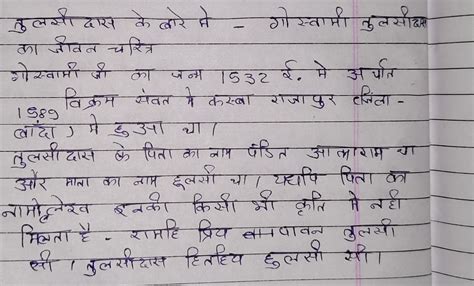 तुलसी दास के बारे मे - गोस्वामी तुलसीदास
का जीवन चरित्र
गोस्वामी जी का जन्म 1532 ई. मे अर्थात
1589 विक्रम संवत मे कस्बा राजापुर (जिला -
बाँदा) मे हुआ था।
तुलसी दास के पिता का नाम पंडित आत्माराम था
और माता का नाम हुलसी था। यद्यपि पिता का
नामोल्लेख इनकी किसी भी कृति मे नही
मिलता है - रामहि प्रिय पावन तुलसी
सी। तुलसीदास हितहिय हुलसी सी।